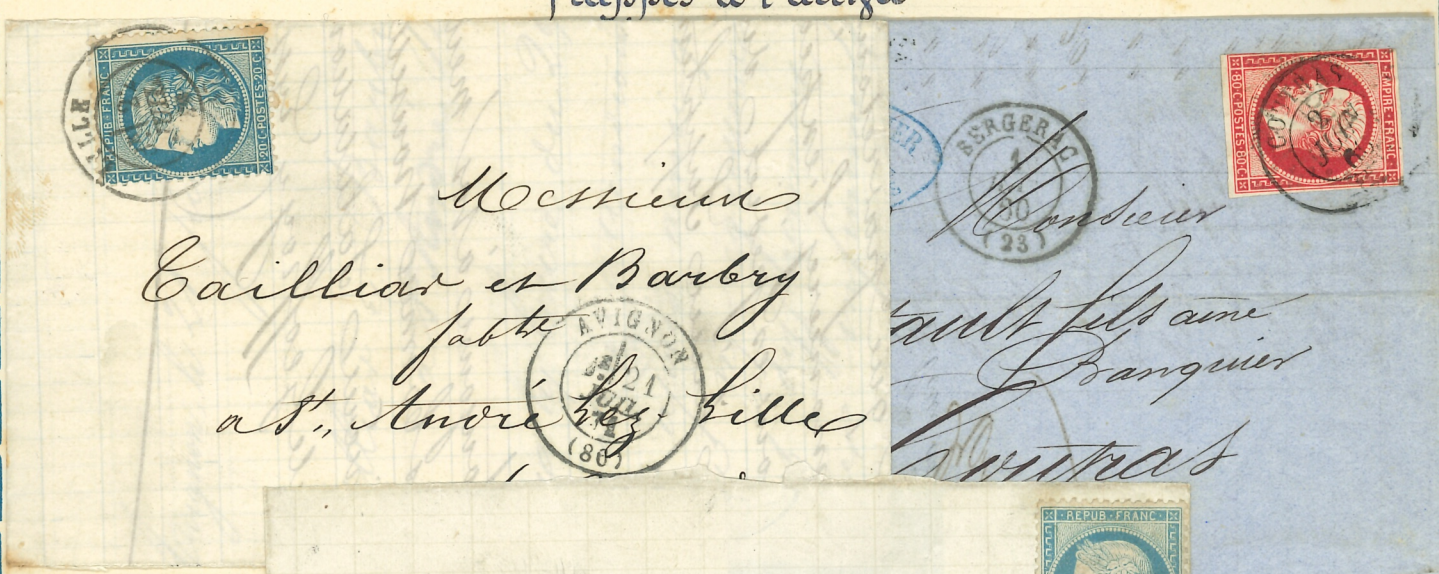 frappés à l'arrivée
REPUB. FRANC.
20 C. POSTES. 20 C.
LILLE
Messieurs
Tailliar et Barbry
fabts
a St. André lez Lille
AVIGNON
21
(86)
BERGERAC
1
60
(23)
EMPIRE FRANC.
80 C. POSTES. 80 C.
COUTRAS
2
Monsieur
ault fils ainé
Banquier
Coutras
REPUB. FRANC.